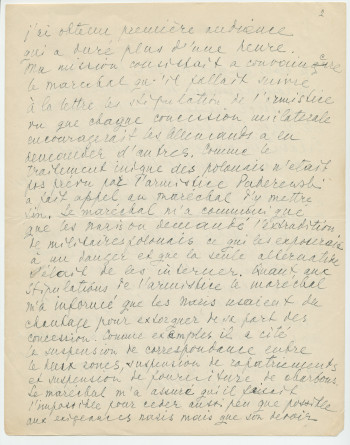 2
j'ai obtenu première audience
qui a duré plus d'une heure.
Ma mission consistait a convaincre
le marechal qu'il fallait suivre
à la lettre les stipulation de l'armistice
vu que chaque concession unilaterale
encouragerait les allemands a en
demander d'autres. Comme le
traitement indigne des polonais n'etait
pas prévu par l'armistice Paderewski
a fait appel au marechal d'y mettre
fin. Le maréchal m'a communiqué
que les nazis ont demandé l'extradition
de militaires polonais ce qui les exposerait
à un danger et que la seule alternative
était de les interner. Quant aux
stipulations de l'armistice le maréchal
m'a informé que les Nazis usaient du
chantage pour extorquer de sa part des
concession. Comme exemples il a cité
la suspension de correspondance entre
le deux zones, suspension de rapatriements
et suspension de fourniture de charbons.
Le maréchal m'a assuré qu'il faisait
l'impossible pour ceder aussi peu que possible
aux exigeances nazis mais que son devoir